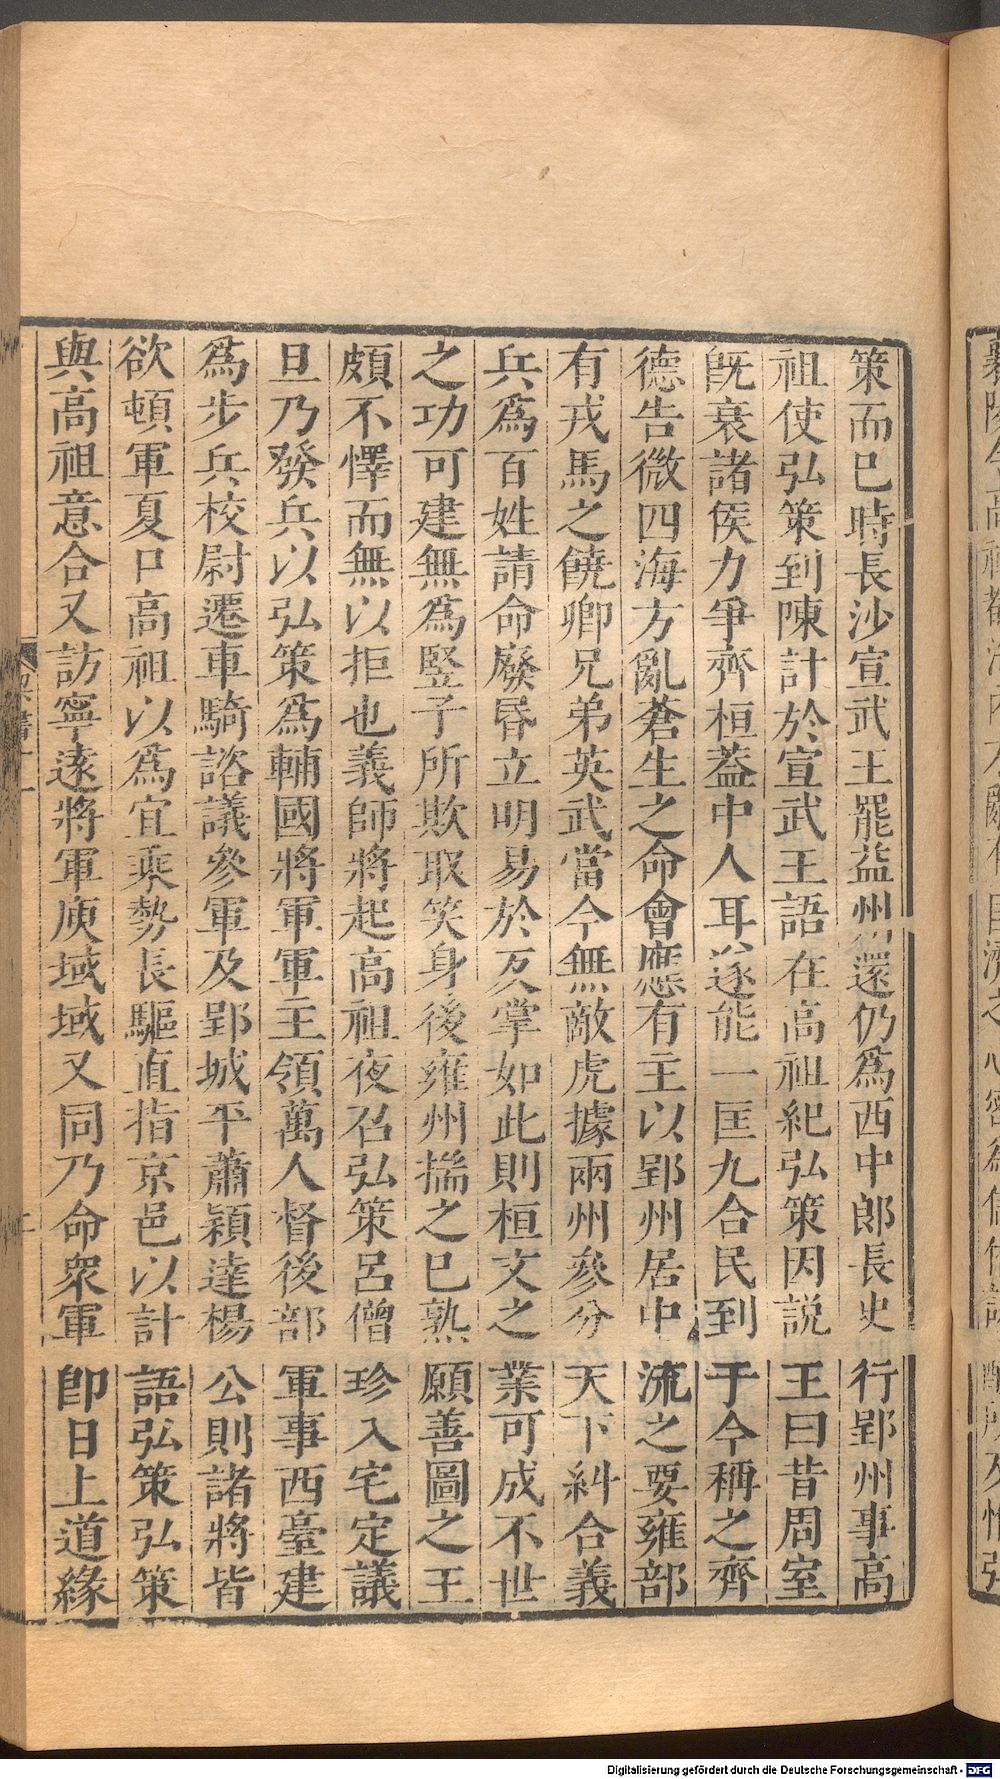 策而已時長沙宣武王罷益州還仍爲西中郎長史行郢州事高
祖使弘策到陳計於宣武王語在高祖紀弘策因説王曰昔周室
旣衰諸侯力爭齊桓蓋中人耳遂能一匡九合民到于今稱之齊
德告微四海方亂蒼生之命會應有主以郢州居中流之要雍部
有戎馬之饒卿兄弟英武當今無敵虎據兩州參分天下糾合義
兵爲百姓請命廢昬立明易於反掌如此則桓文之業可成不世
之功可建無爲竪子所欺取笑身後雍州揣之已熟願善圖之王
頗不懌而無以拒也義師將起高祖夜召弘策呂僧珍入宅定議
旦乃發兵以弘策爲輔國將軍軍主領萬人督後部軍事西臺建
爲步兵校尉遷車騎諮議參軍及郢城平蕭穎達楊公則諸將皆
欲頓軍夏口高祖以爲宜乘勢長驅直指京邑以計語弘策弘策
與高祖意合又訪寧遠將軍庾域域又同乃命衆軍卽日上道緣
Digitalisierung gefördert durch die Deutsche Forschungsgemeinschaft - DFG